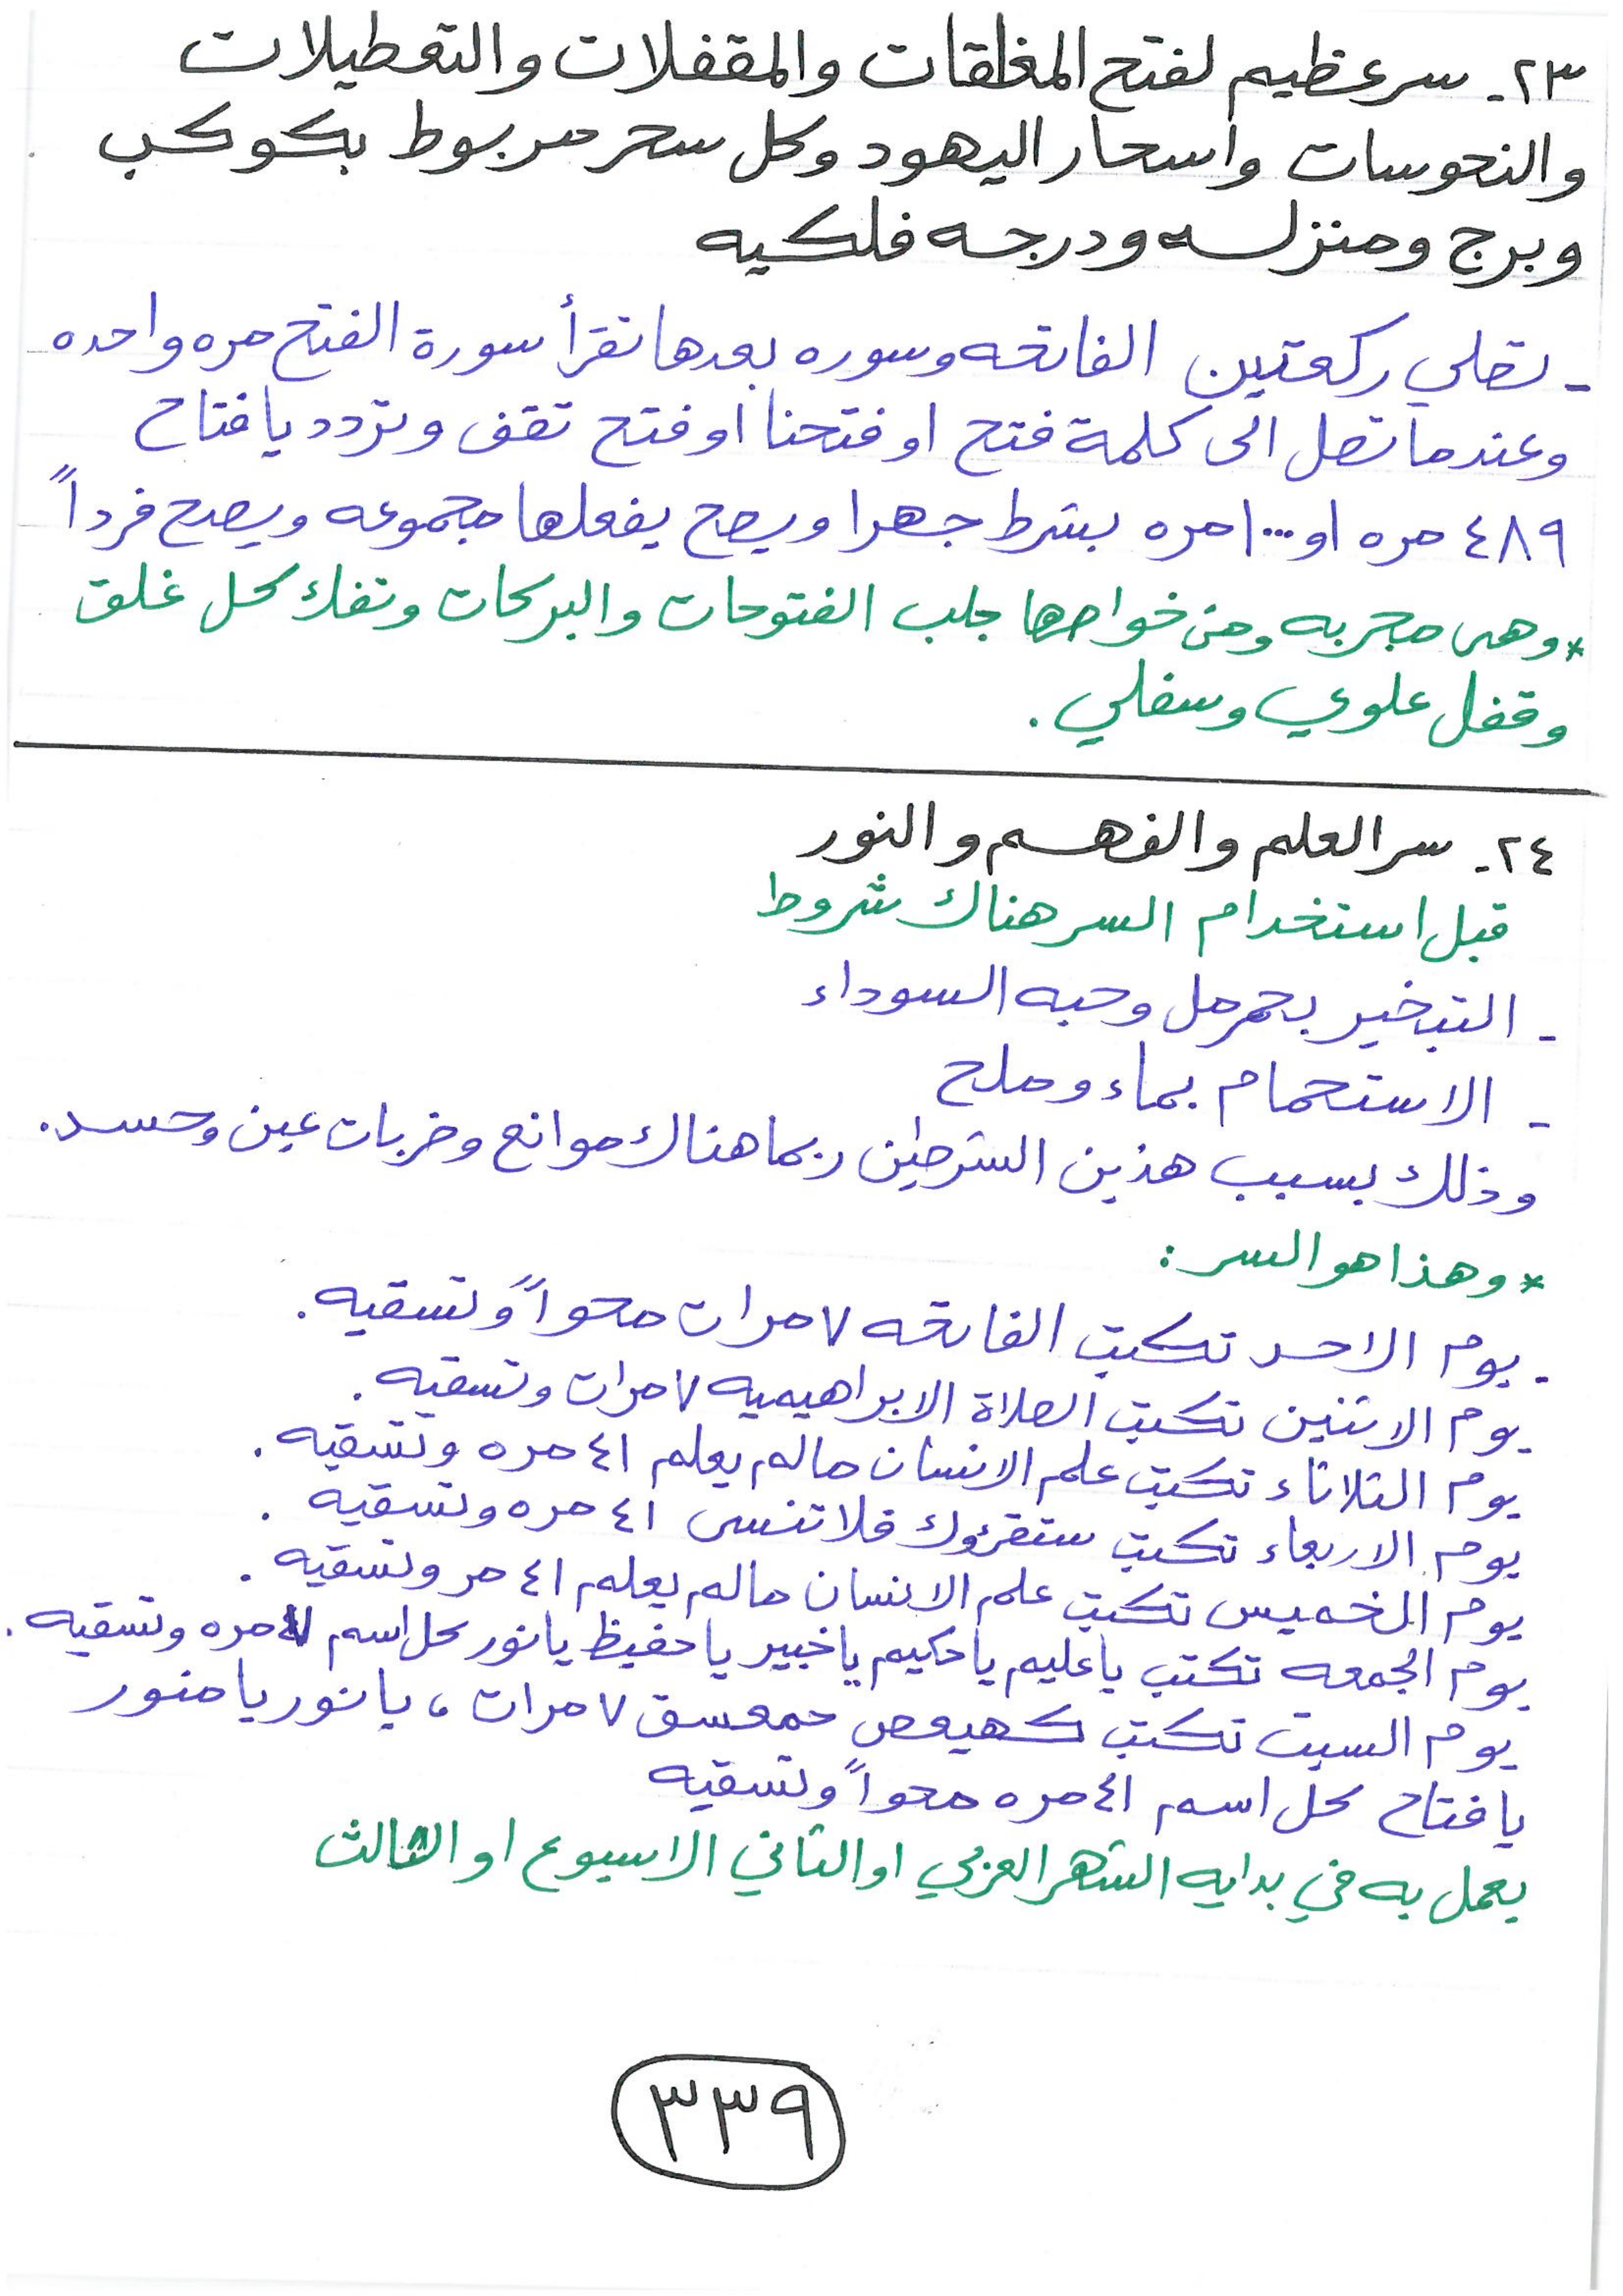 ٢٣- سر عظيم لفتح المغلقات والمقفلات والتعطيلات
والنحوسات واسحار اليهود وكل سحر مربوط بكوكب
وبرج ومنزله ودرجه فلكيه
- تصلي ركعتين الفاتحه وسوره بعدها تقرأ سورة الفتح مره واحده
وعندما تصل الى كلمة فتح او فتحنا او فتح تقف وتردد يا فتاح
٤٨٩ مره او ١٠٠٠ مره بشرط جهرا ويصح يفعلها مجموعه ويصح فرداً
* وهي مجربه ومن خواصها جلب الفتوحات والبركات وتفك كل غلق
وقفل علوي وسفلي .
٢٤- سر العلم والفهم والنور
قبل استخدام السر هناك شروط
- التبخير بحرمل وحبه السوداء
- الاستحمام بماء وملح
وذلك بسبب هذين الشرطين ربما هناك موانع وضربات عين وحسد.
* وهذا هو السر :
- يوم الاحد تكتب الفاتحه ٧ مرات محواً وتسقيه .
يوم الاثنين تكتب الصلاة الابراهيميه ٧ مرات وتسقيه .
يوم الثلاثاء تكتب علم الانسان مالم يعلم ٤١ مره وتسقيه .
يوم الاربعاء تكتب سنقرؤك فلا تنسى ٤١ مره وتسقيه .
يوم الخميس تكتب علم الانسان مالم يعلم ٤١ مر وتسقيه .
يوم الجمعه تكتب يا عليم يا حكيم يا خبير يا حفيظ يا نور كل اسم مره وتسقيه .
يوم السبت تكتب كهيعص حمعسق ٧ مرات ، يا نور يا منور
يا فتاح كل اسم ٤١ مره محواً وتسقيه
يعمل به في بدايه الشهر العربي او الثاني الاسبوع او الثالث
٣٣٩